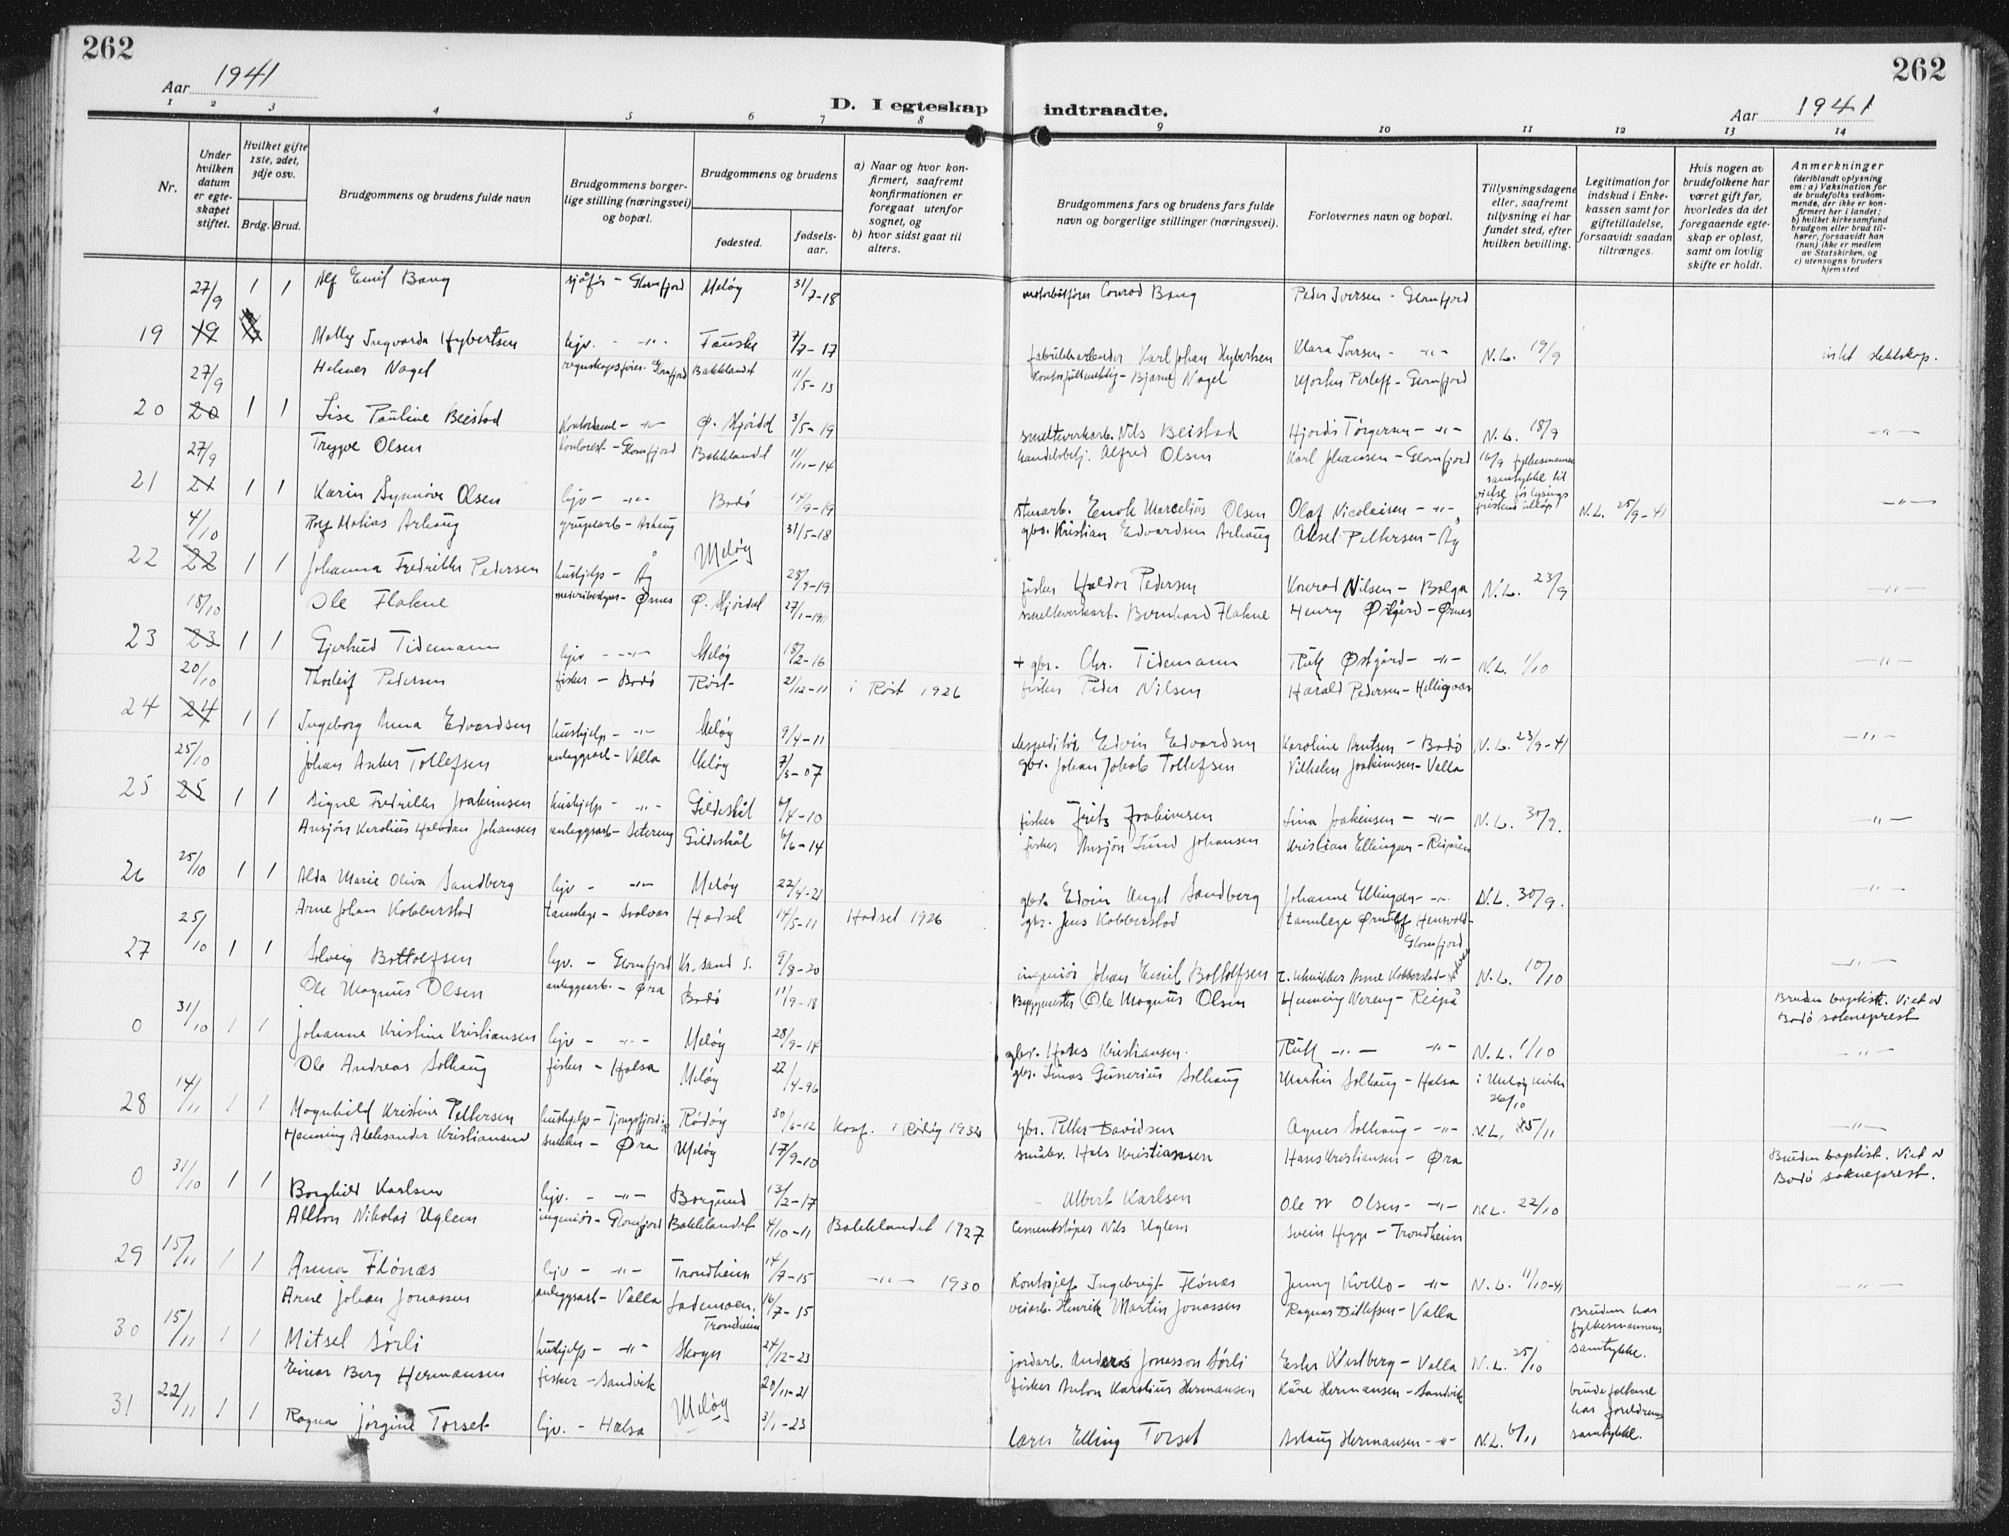 262
262
Aar 1941
Aar 1941
D. I egteskap indtraadte.
1 2 3 4 5 6 7 8 9 10 11 12 13 14
Nr.
Under hvilken datum er egteskapet stiftet.
Hvilket gifte 1ste, 2det, 3dje osv.
Brdg. Brud.
Brudgommens og brudens fulde navn
Brudgommens borgerlige stilling (næringsvei) og bopæl.
Brudgommens og brudens
fødested.
fødselsaar.
a) Naar og hvor konfirmert, saafremt konfirmationen er foregaat utenfor sognet, og
b) hvor sidst gaat til alters.
Brudgommens fars og brudens fars fulde navn og borgerlige stillinger (næringsvei).
Forlovernes navn og bopæl.
Tillysningsdagene eller, saafremt tillysning ei har fundet sted, efter hvilken bevilling.
Legitimation for indskud i Enkekassen samt for giftetilladelse, forsaavidt saadan tiltrænges.
Hvis nogen av brudefolkene har været gift før, hvorledes da det foregaaende egteskap er opløst, samt om lovlig skifte er holdt.
Anmerkninger
(deriblandt oplysning om: a) Vaksination for de brudefolks vedkommende, der ikke er konfirmert her i landet; b) hvilket kirkesamfund brudgom eller brud tilhører, forsaavidt han (hun) ikke er medlem av Statskirken, og c) utensogns bruders hjemsted
27/9 1 1 Alf Emil Bang sjåfør - Glomfjord Meløy 31/7-18 Conrad Bang Peder Iversen - Glomfjord
19 19 Molly Ingvarda Hybertsen hjv. - -"- Fauske 7/7-17 fabrikkarbeider Karl Johan Hybertsen Klara Iversen - -"- N.L. 19/9
27/9 Helmer Nagel regnskapsfører - Glomfjord Bakklandet 11/5-13 Bjarne Nagel - Glomfjord
20 20 1 1 Lise Pauline Beistad -"- Ø. Stjørdal 3/5-19 smelteverkarb. Nils Beistad Hjørdis Torgersen - -"- N.L. 18/9 -"-
27/9 Trygve Olsen - Glomfjord Bakklandet 11/11-14 Alfred Olsen Karl Johansen - Glomfjord 16/9 fylkesmannens samtykke til
21 21 1 1 Karin Synnøve Olsen hjv - -"- Bodø 14/9-19 Enok Marcelius Olsen Olaf Nicolaisen - -"- vielse før lysings fristens utløp N.L. 25/9-41 -"-
4/10 Rolf Matias Arhaug Meløy 31/5-18 gbr. Kristian Edvardsen Arhaug Aksel Pettersen - Åg
22 22 1 1 Johanna Fredrikke Pedersen hushjelp - Åg 28/9-19 fisker Haldor Pedersen Konrad Nilsen - Bolga N.L. 23/9 -"-
18/10 Ole Flakne - Ørnes Ø. Stjørdal smelteverkarb. Bernhard Flakne Henry Østgård - Ørnes
23 23 1 1 Gjertrud Tidemann hjv - -"- Meløy 18/2-16 + gbr. Chr. Tidemann Ruth Østgård - -"- N.L. 1/10 -"-
20/10 Thorleif Pedersen fisker - Bodø Røst 21/12-11 i Røst 1926 fisker Peder Nilsen Harald Pedersen - Helligvær
24 24 1 1 Ingeborg Anna Edvardsen hushjelp - -"- Meløy 9/4-11 ekspeditør Edvin Edvardsen Karoline Knutsen - Bodø N.L. 23/9-41 -"-
25/10 Johan Anker Tollefsen anleggsarb - Valla Meløy gbr. Johan Jakob Tollefsen Vilhelm Joakimsen - Valla
25 25 1 1 Signe Fredrikke Joakimsen hushjelp - -"- Gildeskål 6/4-10 fisker Fritz Joakimsen Lina Joakimsen - -"- N.L. 30/9. -"-
Ansjøn Karolius Halvdan Johansen anleggsarb - Setereng Gildeskål 6/6-14 fisker Ansjøn Lund Johansen Kristian Ellingsen - Reipå
26 25/10 1 1 Alda Marie Oliva Sandberg hjv - -"- Meløy 22/4-21 gbr. Edvin Angel Sandberg Johanne Ellingsen - -"- N.L. 30/9. -"-
25/10 Arne Johan Kobberstad tannlege - Svolvær Hadsel 14/5-11 Hadsel 1926 gbr. Jens Kobberstad tannlege Ørnulf - Glomfjord
27 1 1 Solveig Bottolfsen hjv. - Glomfjord Kr.sand S. 9/8-20 ingeniør Johan Emil Bottolfsen Anne Kobberstad N.L. 10/10 -"-
31/10 Ole Magnus Olsen anleggsarb. - Øra Bodø 11/9-18 Byggmester Ole Magnus Olsen Henning Nereng - Reipå Bruden baptist. Viet av Bodø sokneprest
0 1 1 Johanne Kristine Kristiansen hjv - -"- Meløy 28/9-14 gbr. Hans Kristiansen. Ruth -"- -"- N.L. 1/10 -"-
14/11 Ole Andreas Solhaug fisker - Halsa Meløy 22/4-96 gbr. Gunerius Solhaug Martin Solhaug - Halsa i Meløy kirke 26/10
28 1 1 Magnhild Kristine Pettersen hushjelp - Tjongsfjord Rødøy 30/6-12 Konf. i Rødøy 1932 gbr. Petter Davidsen Agnes Solhaug - -"- N.L. 15/11 -"-
Henning Aleksander Kristiansen snekker - Øra Meløy 17/9-10 småbr. Hals Kristiansen Hans Kristiansen - Øra Bruden baptist. Viet av Bodø sokneprest.
0 31/10 1 1 Borghild Karlsen hjv. - -"- Borgund 13/2-17 Albert Karlsen Ole M Olsen - -"- N.L. 22/10
Nikolai Uglem ingeniør - Glomfjord Bakklandet 4/10-11 Bakklandet 1927 Cementstøper Nils Uglem Svein Hegge - Trondheim
29 15/11 1 1 Anna Flønæs hjv - -"- Trondheim 14/7-15 -"- 1930 Kontorsjef Ingebrigt Flønæs Jenny Kvello - -"- N.L. 11/10-41 -"-
Arne Johan Jonassen anleggsarb - Valla Lademoen, Trondheim 16/7-15 veiarb. Henrik Martin Jonassen Ragnar Ditlefsen - Valla Bruden har fylkesmannens samtykke.
30 15/11 1 1 Mitsel Sørli hushjelp - -"- Skogn 24/12-23 jordarb. Anders Jonasson Sørli Ester Westberg - Valla N.L. 25/10
Einar Berg Hermansen fisker - Sandvik Meløy 20/11-21 fisker Anton Karolius Hermansen Kåre Hermansen - Sandvik brudefolkene har foreldrenes samtykke.
31 22/11 1 1 Ragna Jørgine Torset hjv. - Halsa 3/1-23 lærer Elling Torset Aslaug Hermansen - -"- N.L. 6/11